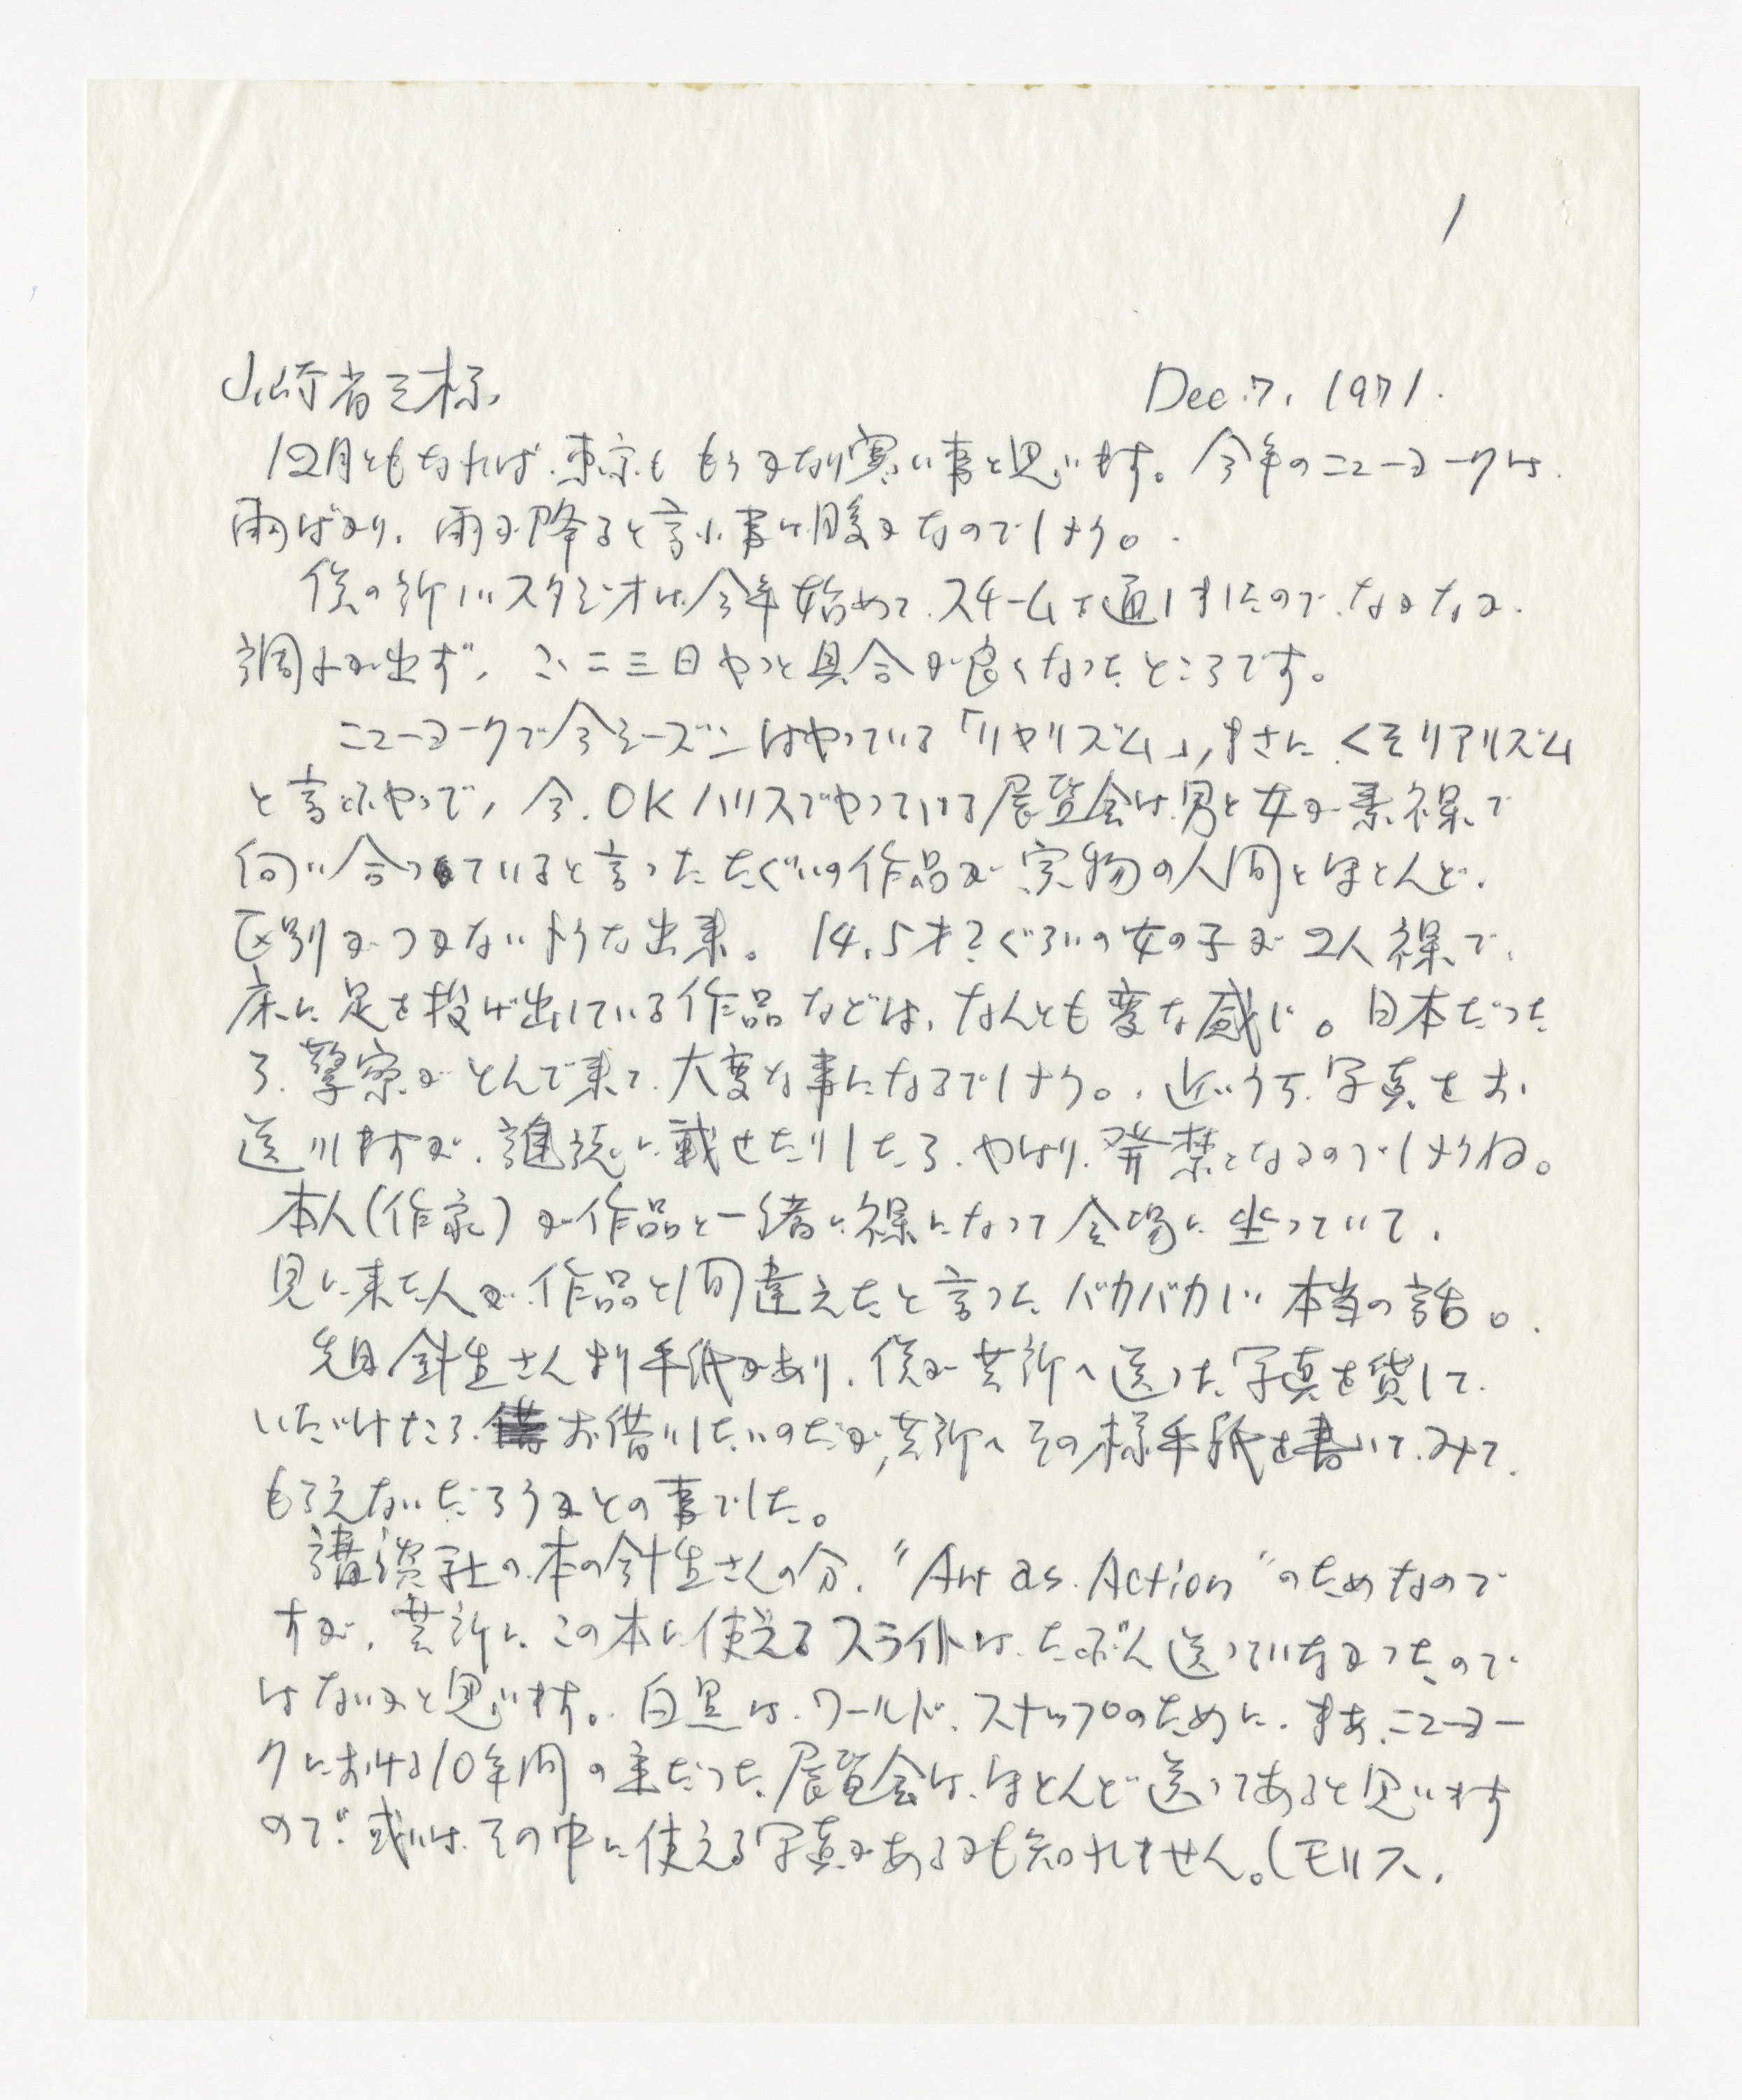 1
山崎省三様、
Dec. 7, 1971.
12月ともなれば、東京も もうかなり寒い事と思います。今年のニューヨークは、
雨ばかり、雨が降ると言う事は暖かなのでしょう。
僕の新しいスタジオは、今年始めて、スチームを通しましたので、なかなか、
調子が出ず、ここ二三日やっと具合が良くなったところです。
ニューヨークで今シーズンはやっている「リヤリズム」、まさに、くそリアリズム
と言うやつで、今、OKハリスでやっている展覧会は、男と女が素裸で
向い合っていると言ったたぐいの作品が、実物の人間とほとんど、
区別がつかないような出来。14、5才?ぐらいの女の子が2人裸で、
床に足を投げ出している作品などは、なんとも変な感じ。日本だった
ら、警察がとんで来て、大変な事になるでしょう。近いうち、写真をお
送りしますが、雑誌に載せたりしたら、やはり、発禁となるのでしょうね。
本人(作家)が作品と一緒に裸になって会場に坐っていて、
見に来た人が、作品と間違えたと言ったバカバカしい本当の話。
先日針生さんより手紙があり、僕が芸新へ送った写真を貸して、
いただけたら、お借りしたいのだが、芸新へその様手紙を書いて、みて、
もらえないだろうかとの事でした。
講談社の本の針生さんの分、"Art as Action"のためなので
すが、芸新に、この本に使えるスライドは、たぶん送っていなかったので
はないかと思います。白黒は、ワールド、スナップのために、まあ、ニューヨー
クにおける10年間の主だった展覧会は、ほとんど送ってあると思います
ので、或いは、その中に使える写真があるかも知れません。(モリス、